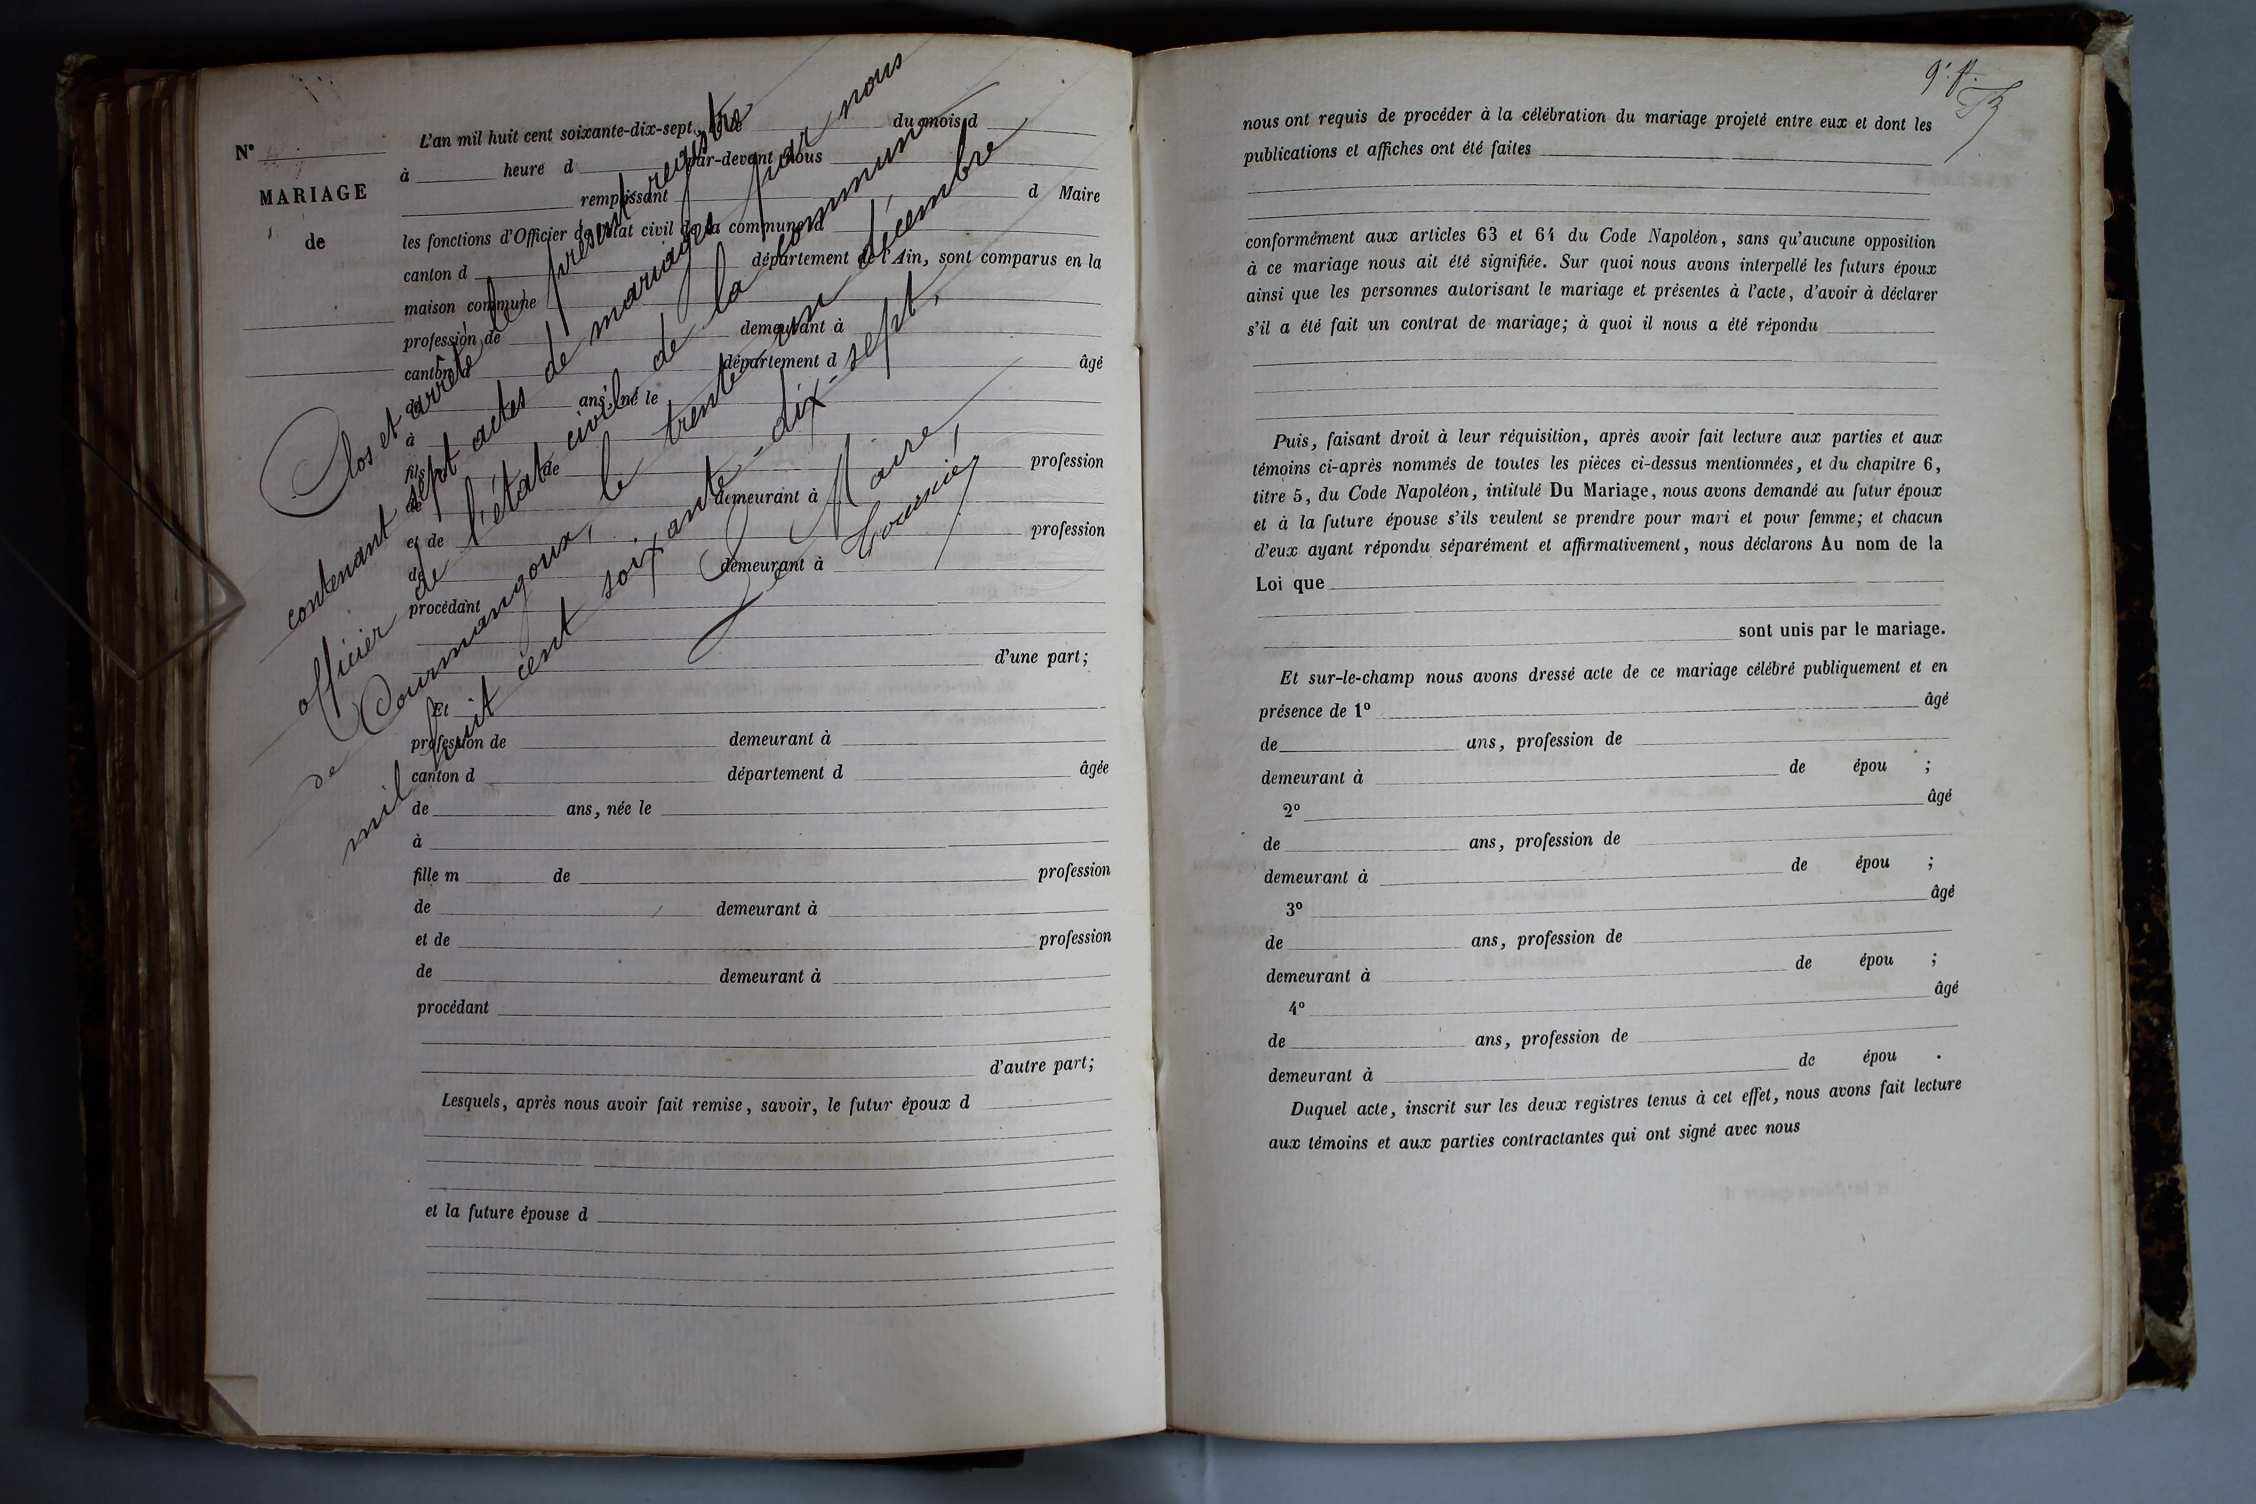 N°
MARIAGE
de
L'an mil huit cent soixante-dix-sept, le du mois d
à heure d par-devant nous
remplissant d Maire
les fonctions d'Officier de l'état civil de la commune d
canton d département de l'Ain, sont comparus en la
maison commune
profession de demeurant à
canton d département d âgé
de ans, né le
à
fils de profession
de demeurant à
et de profession
de demeurant à
procédant
d'une part;
Et
profession de demeurant à
canton d département d âgée
de ans, née le
à
fille m de profession
de demeurant à
et de profession
de demeurant à
procédant
d'autre part;
Lesquels, après nous avoir fait remise, savoir, le futur époux d
et la future épouse d
Clos et arrêté le présent registre
contenant sept actes de mariages par nous
officier de l'état civil de la commune
de Courmangoux, le trente-un décembre
mil huit cent soixante-dix-sept,
Le Maire,
9e f.
nous ont requis de procéder à la célébration du mariage projeté entre eux et dont les
publications et affiches ont été faites
conformément aux articles 63 et 64 du Code Napoléon, sans qu'aucune opposition
à ce mariage nous ait été signifiée. Sur quoi nous avons interpellé les futurs époux
ainsi que les personnes autorisant le mariage et présentes à l'acte, d'avoir à déclarer
s'il a été fait un contrat de mariage; à quoi il nous a été répondu
Puis, faisant droit à leur réquisition, après avoir fait lecture aux parties et aux
témoins ci-après nommés de toutes les pièces ci-dessus mentionnées, et du chapitre 6,
titre 5, du Code Napoléon, intitulé Du Mariage, nous avons demandé au futur époux
et à la future épouse s'ils veulent se prendre pour mari et pour femme; et chacun
d'eux ayant répondu séparément et affirmativement, nous déclarons Au nom de la
Loi que
sont unis par le mariage.
Et sur-le-champ nous avons dressé acte de ce mariage célébré publiquement et en
présence de 1° âgé
de ans, profession de
demeurant à de épou ;
2° âgé
de ans, profession de
demeurant à de épou ;
3° âgé
de ans, profession de
demeurant à de épou ;
4° âgé
de ans, profession de
demeurant à de épou .
Duquel acte, inscrit sur les deux registres tenus à cet effet, nous avons fait lecture
aux témoins et aux parties contractantes qui ont signé avec nous